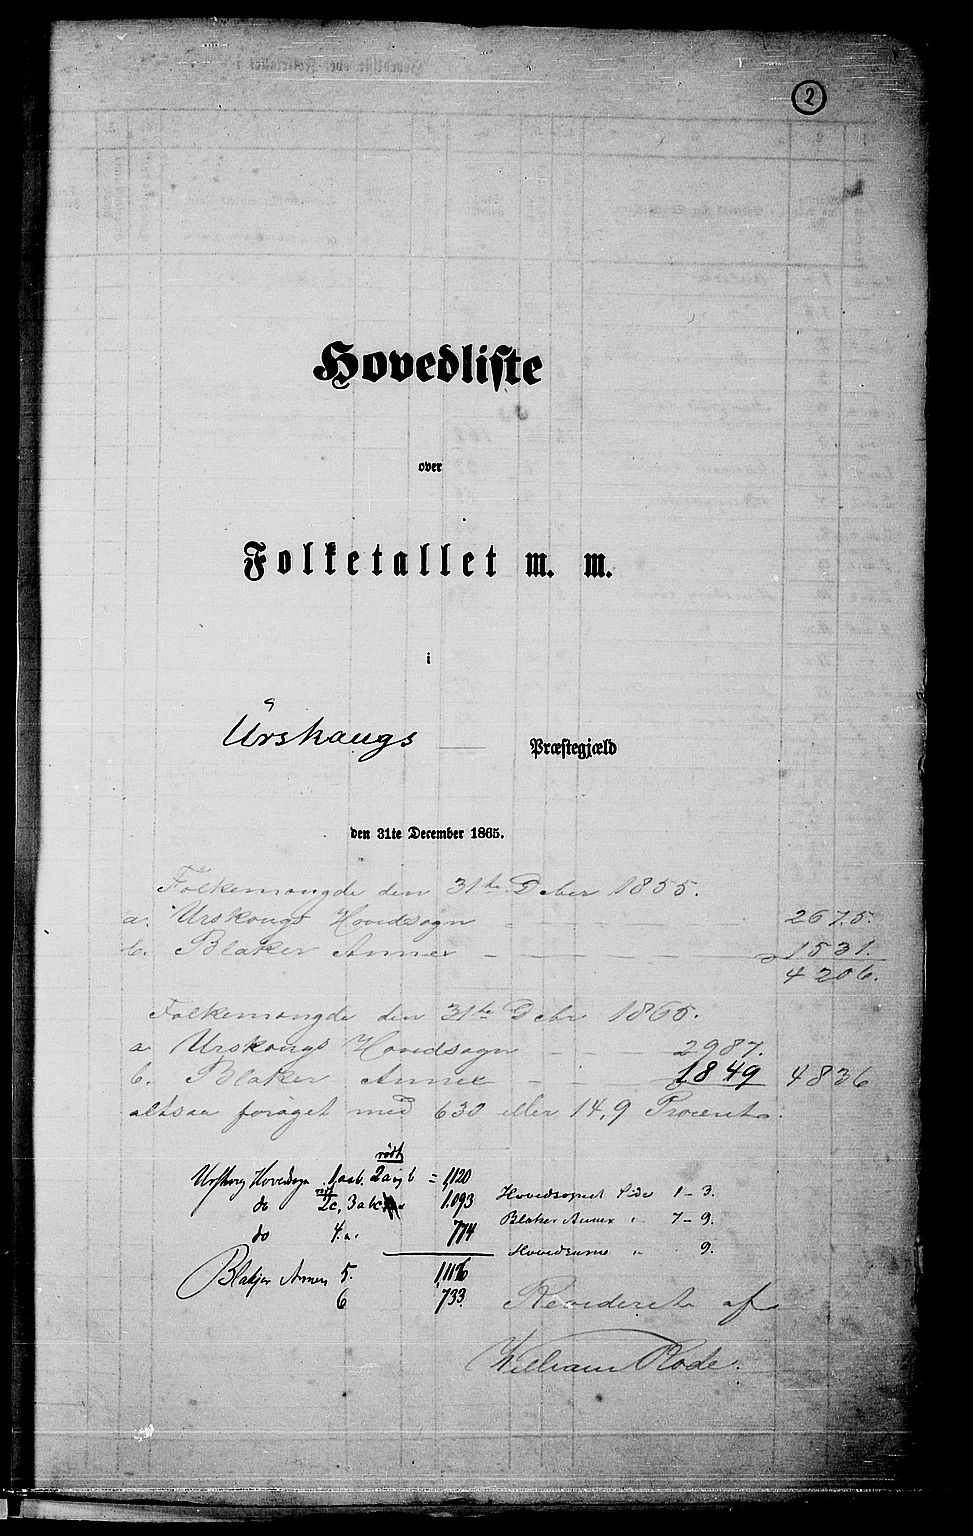 2
Hovedliste
over
Folketallet m. m.
i
Urskougs Præstegjæld
den 31te December 1865.
Folkemængde den 31te Dcber 1855.
a. Urskougs Hovedsogn - - - - 2675.
b. Blaker Annex - - - - 1531.
4206.
Folkemængde den 31te Dcbr 1865.
a. Urskougs Hovedsogn - - - 2987.
b. Blaker Annex - - - 1849 4836
altsaa foröget med 630 eller 14,9 Procent.
rödt
Urskoug Hovedsogn 1 2 a = 1,120
do 2c, 3 1,093
do 4. 774
Blakjer Annex 5. 1,116
6 733.
Hovedsognet Side 1-3.
Blaker Annex " 7-9.
Hovedsume " 9.
Revideret af
William Rode.